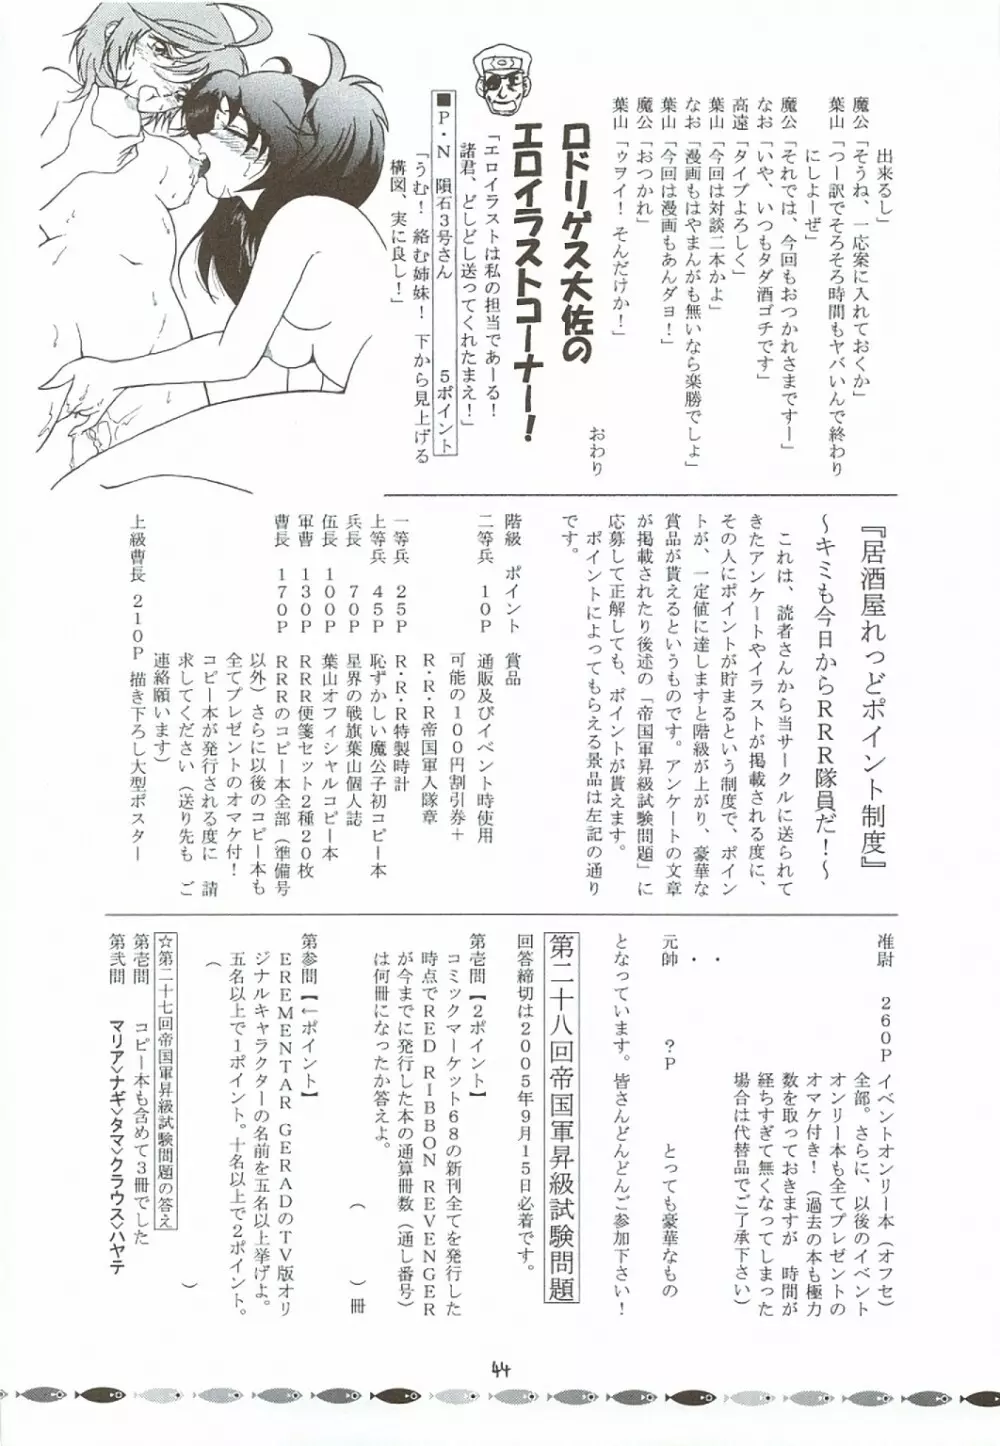 出来るし」
魔公「そうね、一応案に入れておくか」
葉山「つー訳でそろそろ時間もヤバいんで終わり
にしよーぜ」
魔公「それでは、今回もおつかれさまですー」
なお「いや、いつもタダ酒ゴチです」
高遠「タイプよろしく」
葉山「今回は対談二本かよ」
なお「漫画もはやまんがも無いなら楽勝でしょ」
葉山「今回は漫画もあんダヨ！」
魔公「おつかれ」
葉山「ゥヲイ！そんだけか！」
おわり
ロドリゲス大佐の
エロイラストコーナー！
「エロイラストは私の担当であーる！
諸君、どしどし送ってくれたまえ！」
■P・N 隕石3号さん 5ポイント
「うむ！絡む姉妹！下から見上げる
構図、実に良し！」
『居酒屋れっどポイント制度』
～キミも今日からRRR隊員だ！～
これは、読者さんから当サークルに送られて
きたアンケートやイラストが掲載される度に、
その人にポイントが貯まるという制度で、ポイン
トが、一定値に達しますと階級が上がり、豪華な
賞品が貰えるというものです。アンケートの文章
が掲載されたり後述の「帝国軍昇級試験問題」に
応募して正解しても、ポイントが貰えます。
ポイントによってもらえる景品は左記の通り
です。
階級 ポイント 賞品
二等兵 10P 通販及びイベント時使用
可能の100円割引券＋
R・R・R帝国軍入隊章
一等兵 25P R・R・R特製時計
上等兵 45P 恥ずかしい魔公子初コピー本
兵長 70P 星界の戦旗葉山個人誌
伍長 100P 葉山オフィシャルコピー本
軍曹 130P RRR便箋セット2種20枚
曹長 170P RRRのコピー本全部（準備号
以外）さらに以後のコピー本も
全てプレゼントのオマケ付！
コピー本が発行される度に 請
求してください（送り先も ご
連絡願います）
上級曹長 210P 描き下ろし大型ポスター
准尉 260P イベントオンリー本（オフセ）
全部。さらに、以後のイベント
オンリー本も全てプレゼントの
オマケ付き！（過去の本も極力
数を取っておきますが 時間が
経ちすぎて無くなってしまった
場合は代替品でご了承下さい）
・
・
元帥 ？P とっても豪華なもの
となっています。皆さんどんどんご参加下さい！
第二十八回帝国軍昇級試験問題
回答締切は2005年9月15日必着です。
第壱問【2ポイント】
コミックマーケット68の新刊全てを発行した
時点でRED RIBBON REVENGER
が今までに発行した本の通算冊数（通し番号）
は何冊になったか答えよ。
（ ）冊
第参問【←ポイント】
EREMENTAR GERADのTV版オリ
ジナルキャラクターの名前を五名以上挙げよ。
五名以上で1ポイント。十名以上で2ポイント。
（ ）
☆第二十七回帝国軍昇級試験問題の答え
第壱問 コピー本も含めて3冊でした
第弐問 マリア＞ナギ＞タマ＞クラウス＞ハヤテ
44